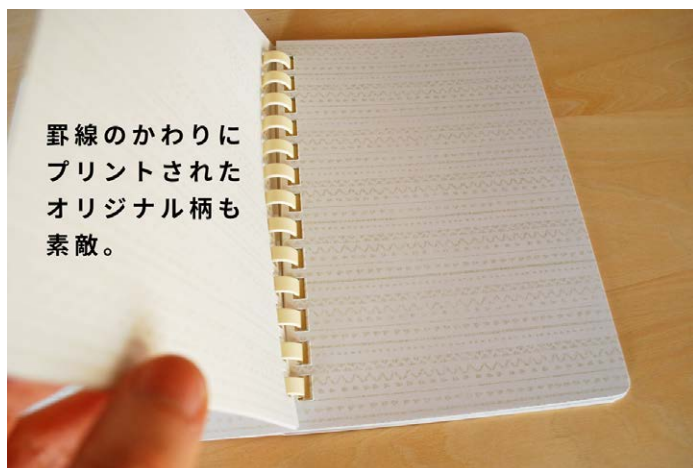 罫線のかわりに
プリントされた
オリジナル柄も
素敵。